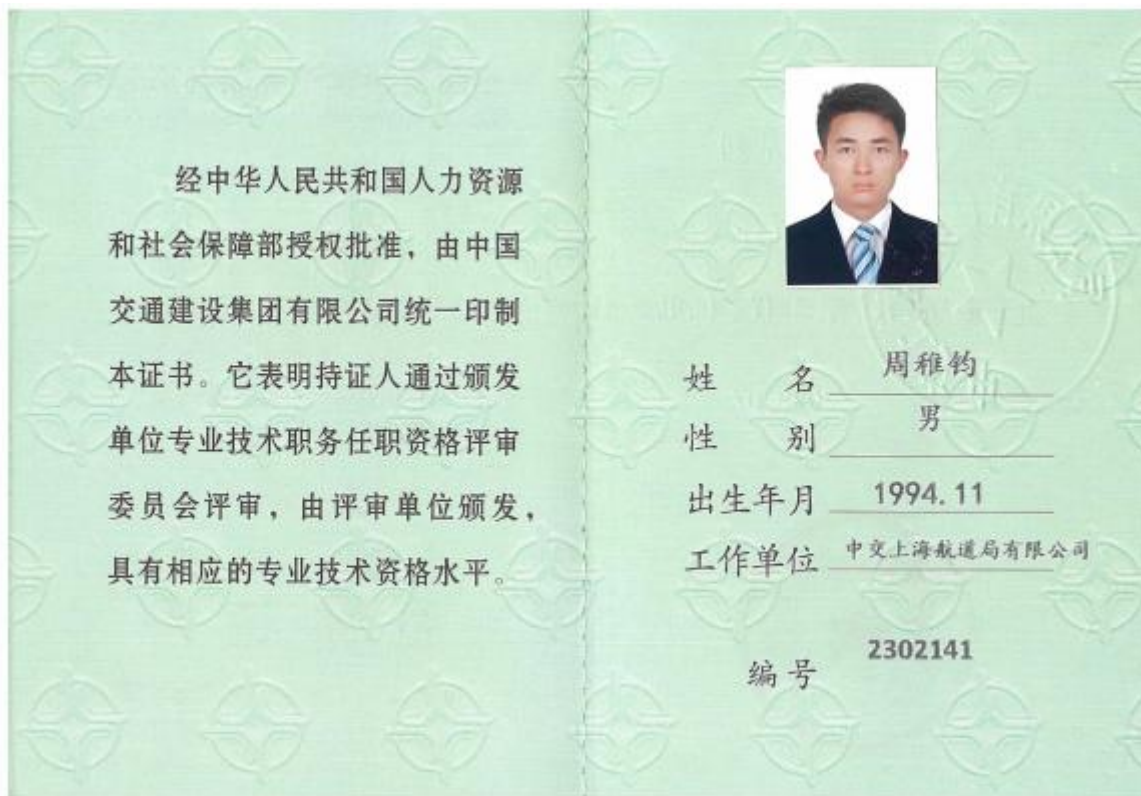 经中华人民共和国人力资源
和社会保障部授权批准，由中国
交通建设集团有限公司统一印制
本证书。它表明持证人通过颁发
单位专业技术职务任职资格评审
委员会评审，由评审单位颁发，
具有相应的专业技术资格水平。
姓名 周稚钧
性别 男
出生年月 1994.11
工作单位 中交上海航道局有限公司
编号 2302141